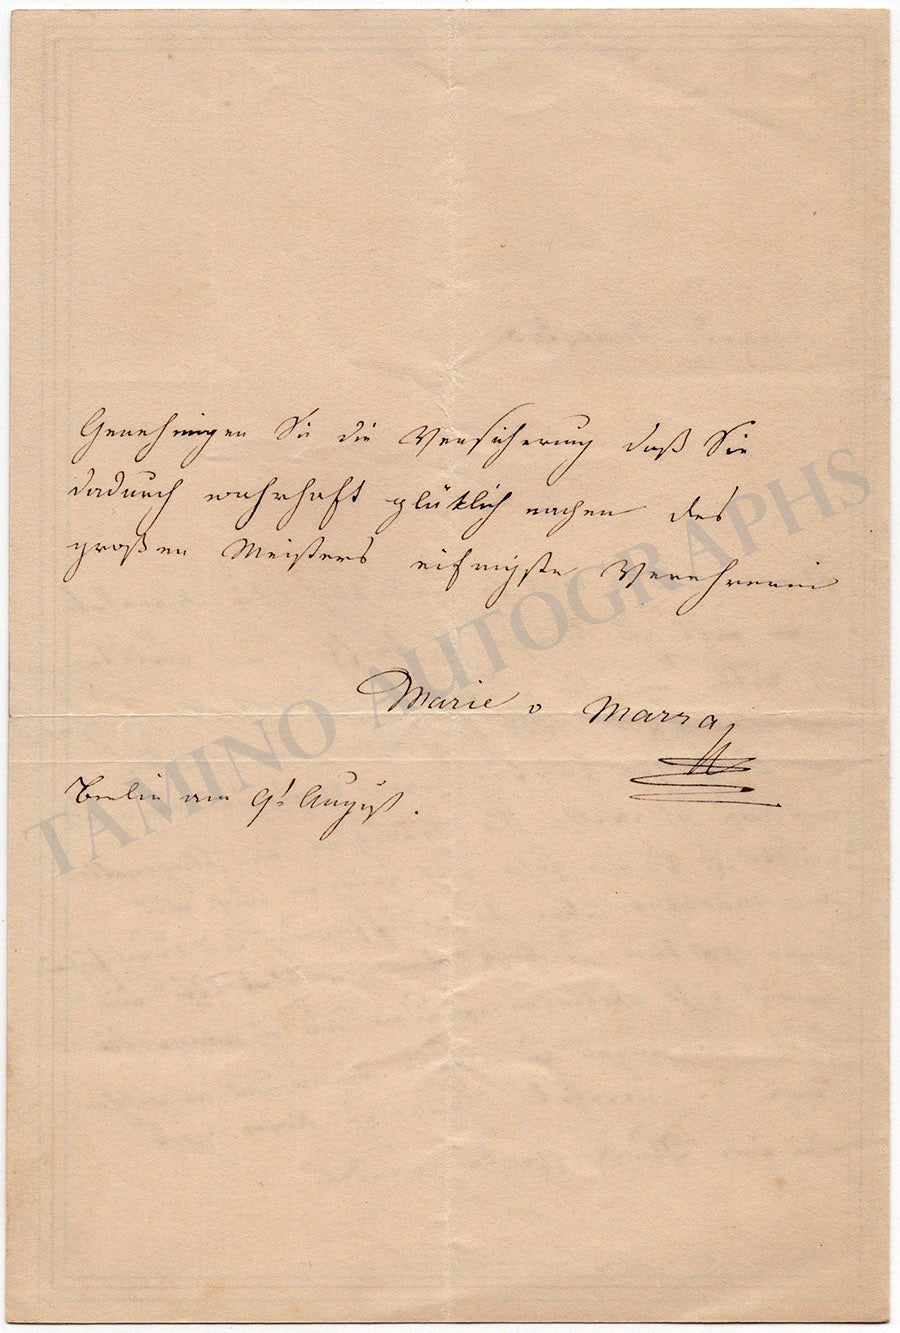 Genehmigen Sie die Versicherung daß Sie
dadurch wahrhaft glüklich machen des
großen Meisters eifrigste Verehrerin
Marie v Marra
Berlin am 9t August.
TAMINO AUTOGRAPHS